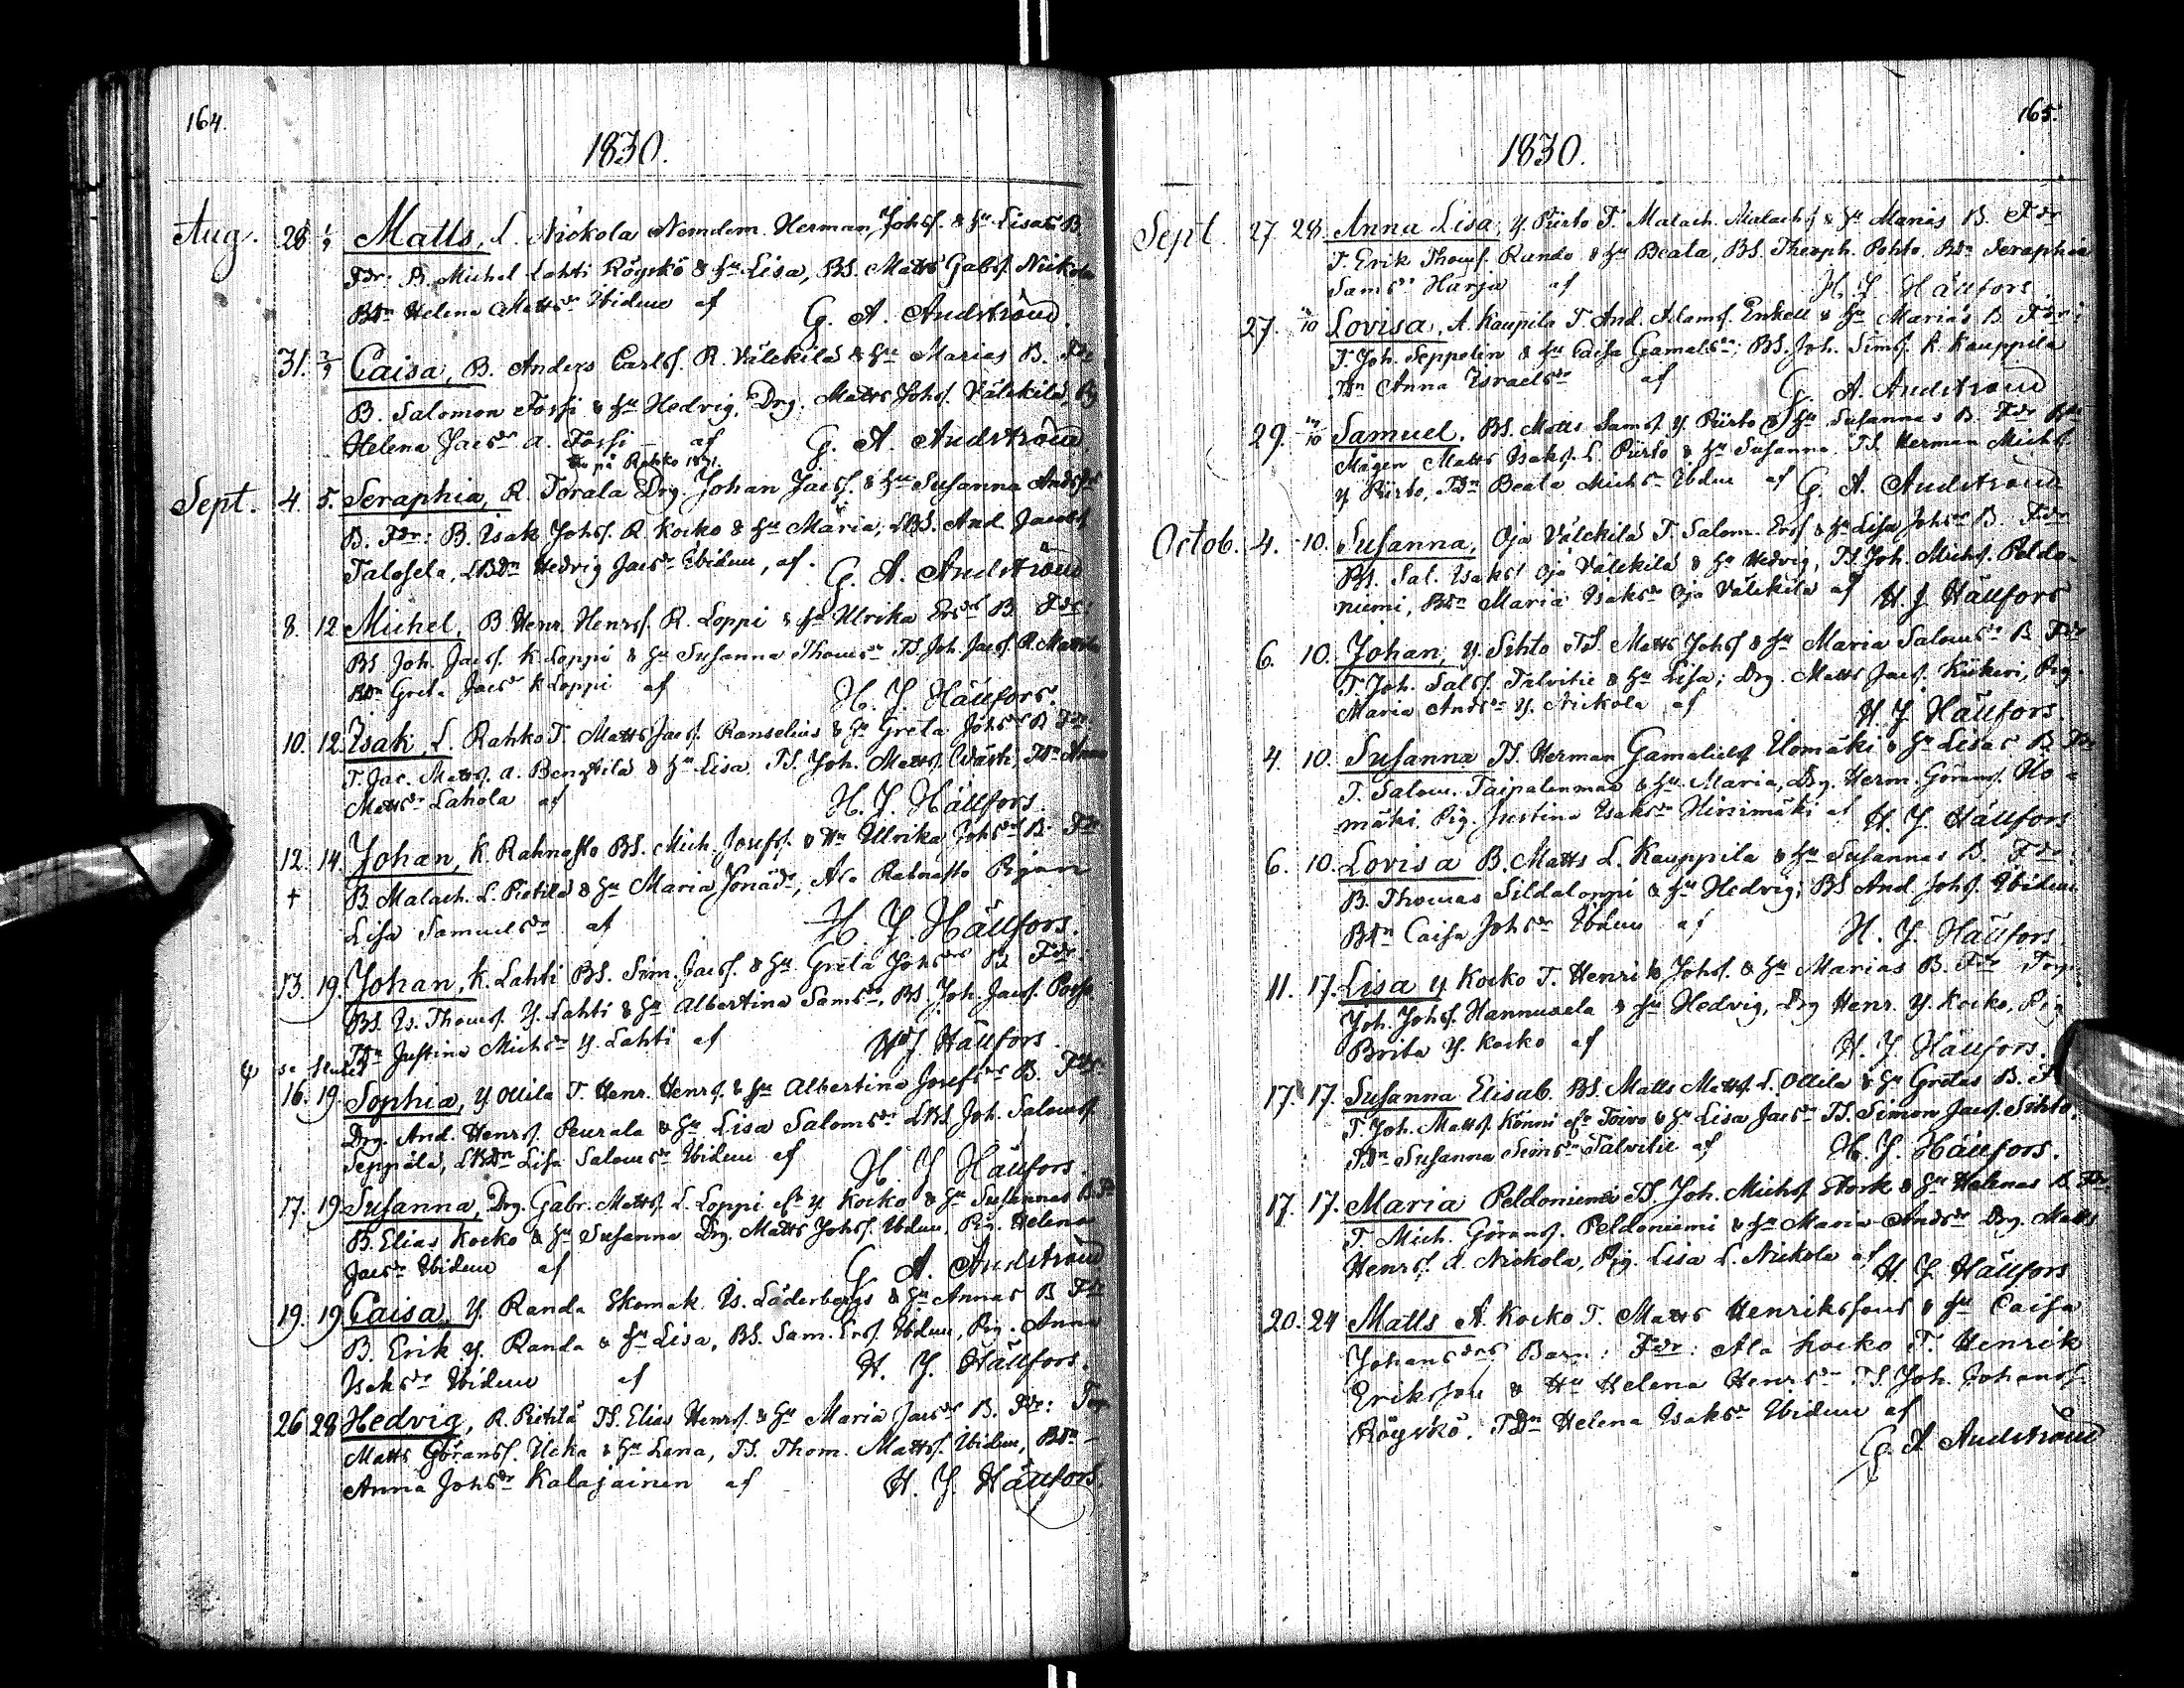 164.
1830.
Aug. 28 1/9 Matts, L. Nickola Nemdem. Herman Johss. & hu Lisas B.
Fdr: B. Michel Lahti Röyskö & hu Lisa, BS. Matts Gabrs. Nickola
BDn Helena Mattsdr Ibidem af G. A. Andström.
31. 2/9 Caisa, B. Anders Carlss. R. Välikilä & hu Marias B. Fdr
B. Salomon Fossi & hu Hedvig, Drg. Matts Johs. Välikilä, Pig
Helena Jacsdr a. Fossi af G. A. Andström
på Rahko 1831.
Sept. 4. 5. Seraphia, R. Torala Drg Johan Jacs. & hu Susanna Andsdrs
B. Fdr: B. Isak Johss. R. Kocko & hu Maria, LBS. And. Jacobs.
Talosela, LBDn Hedvig Jacsdr Ibidem, af. G. A. Andström
8. 12 Michel, B. Henr. Henrs. R. Loppi & hu Ulrika Ersdrs B. Fdr:
BS. Joh. Jacs. K Loppi & hu Susanna Thomsdr TS. Joh. Jacs. R. Mattila
BDn Greta Jacsdr K Loppi af H. J. Hällfors.
10. 12. Isak, L. Rahko T. Matts Jacs. Ranselius & hu Greta Johsdrs B. Fdr.
T. Jac. Matts. a. Bengtila & hu Lisa. TS. Joh. Matts. Wästi, TDn Anna
Mattsdr Lahola af H. J. Hällfors.
12. 14. Johan, K. Rahnasto BS. Mich. Josefs. & Hu Ullrika Johsdrs B. Fdr
+ B Malach. L. Pietilä & hu Maria Jonädr, Ala Rahnasto Pigan
Lisa Samuelsdr af H. J. Hällfors.
13. 19. Johan, K. Lahti BS. Sim. Jacs. & hu Greta Johsdrs B. Fdr:
BS. Is. Thoms. Y. Lahti & hu Albertina Samsdr, BS. Joh. Jacs.
TDn Justina Michsdr Y. Lahti af H J Hällfors.
se slutet
16. 19. Sophia, Y Ollila T. Henr. Henrs. & hu Albertina Josefsdrs B. Fdr:
Drg. And. Henrs. Peurala & hu Lisa Salomsdr LBS. Joh. Saloms.
Seppälä, LBDn Lisa Salomsdr Ibidem af H. J. Hällfors.
17. 19 Susanna, Drg. Gabr. Matts. L. Loppi el. Y. Kocko & hu Susannas B. Fdr
B. Elias Kocko & hu Susanna Drg. Matts Johs. Ibdem, Pig. Helena
Jacsdr Ibidem af G. A. Andström
19. 19 Caisa, Y. Randa Skomak. Is. Löderbergs & hu Annas B Fdr
B. Erik Y. Randa & hu Lisa, BS. Sam. Ers. Ibdem, Pig. Anna
Isaksdr Ibidem af H. J. Hällfors.
26 28 Hedvig, R. Pietilä TS. Elias Henrs. & hu Maria Jacsdrs B. Fdr: Torp
Matts Görans. Ucka & hu Lena, TS. Thom. Matts. Ibidem, BDn
Anna Johsdr Kalajainen af H. J. Hällfors.
165.
1830.
Sept. 27. 28. Anna Lisa, Y. Piirto T. Malach. Malachs. & hu Marias B. Fdr
T. Erik Thoms. Rundo & hu Beata, BS. Theoph. Pohto, BDn Seraphia
Samsdr Harja af H. J. Hällfors.
27. 3/10 Lovisa, A. Kauppila T. And. Adams. Enkell & hu Marias B. Fdr:
T. Joh. Seppelin & hu Caisa Gamalsdr; BS. Joh. Sims. K. Kauppila
TDn Anna Israelsdr af G. A. Andström
29. /10 Samuel. BS. Matts Sams. Y. Piirto & hu Susannas B. Fdr
Mågen Matts Isaks. L. Piirto & hu Susanna. TS. Herman Michs.
Y Piirto, TDn Beata Michsdr Ibdem af G. A. Andström
Octob. 4. 10. Susanna, Oja Välikilä T. Salom. Ers. & hu Lisa Johsdrs B. Fdr
BS. Sal. Isaks. Oja Välikilä & hu Hedvig, TS Joh. Michs. Peldo-
niemi, BDn Maria Isaksdr Oja Välikilä af H. J Hällfors
6. 10. Johan, Y. Sihto TS. Matts Johs. & hu Maria Salomsdrs B. Fdr
T. Joh. Sals. Talvitie & hu Lisa; Drg. Matts Jacs. Kiikeri, Pig.
Maria Andsdr Y. Nickola af H. J Hällfors.
4. 10. Susanna TS. Herman Gamaliels. Uomäki & hu Lisas B. Fdr
T. Salom. Taipalenmaa & hu Maria, Drg. Herm. Görans. Uo-
mäki Pig. Justina Isaksdr Hirsimäki af H. J. Hällfors
6. 10. Lovisa B. Matts L. Kauppila & hu Susannas B. Fdr:
B. Thomas Sildaloppi & hu Hedvig; BS And. Johs. Ibidem
BDn Caisa Johsdr Ibdem af H. J. Hällfors.
11. 17. Lisa Y. Kocko T. Henrik Johs. & hu Marias B. Fdr Torp.
Joh. Johs. Hannuxela & hu Hedvig, Drg Henr. Y. Kocko, Pig
Brita Y. Kocko af H. J. Hällfors.
17. 17. Susanna Elisab. BS. Matts Matts. L. Ollila & hu Gretas B. F
T Joh. Matts. Könni el. Toivo & hu Lisa Jacsdr TS. Simon Jacs. Sihto,
TDn Susanna Simsdr Talvitie af H. J. Hällfors.
17. 17. Maria Peldoniemi TS. Joh. Michs. Stork & hu Helenas B. Fdr.
T. Mich. Görans. Peldoniemi & hu Maria Andsdr Drg. Matts
Henrs. A. Nickola, Pig. Lisa L. Nickola af H. J. Hällfors
20. 24 Matts A. Kocko T. Matts Henrikssons & hu Caisa
Johansdrs Barn: Fdr: Ala Kocko T. Henrik
Eriksson & Hu Helena Henrsdr TS. Joh. Johans.
Röyskö. TDn Helena Isaksdr Ibidem af
G. A Andström